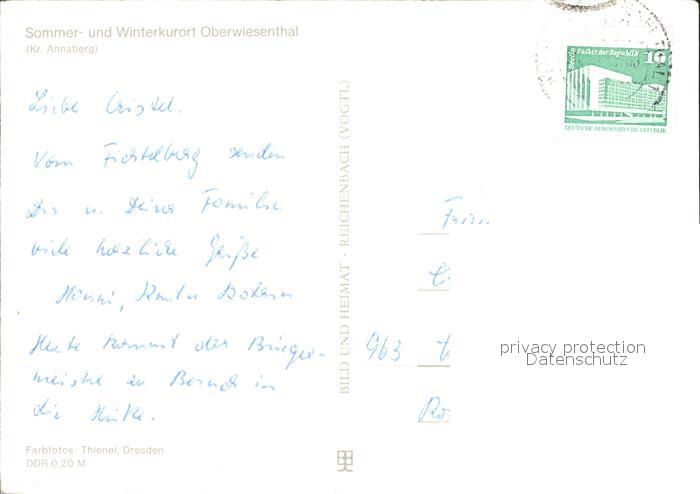 Sommer- und Winterkurort Oberwiesenthal
(Kr. Annaberg)
Liebe Cristel.
Vom Fichtelberg senden
Dir u. Deiner Familie
viele herzliche Grüße
Heute kommt der Bürger-
meister in
die Hütte.
Farbfotos: Thienel, Dresden
DDR 0,20 M
BILD UND HEIMAT · REICHENBACH (VOGTL)
Berlin Palast der Republik
10
DEUTSCHE DEMOKRATISCHE REPUBLIK
963
privacy protection
Datenschutz